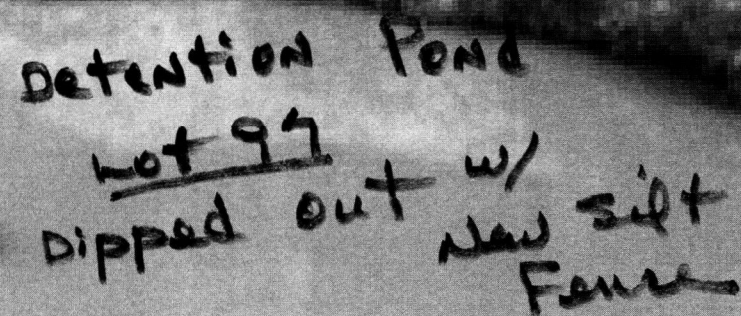 Detention Pond
Lot 99
Dipped out w/
New Silt
Fense